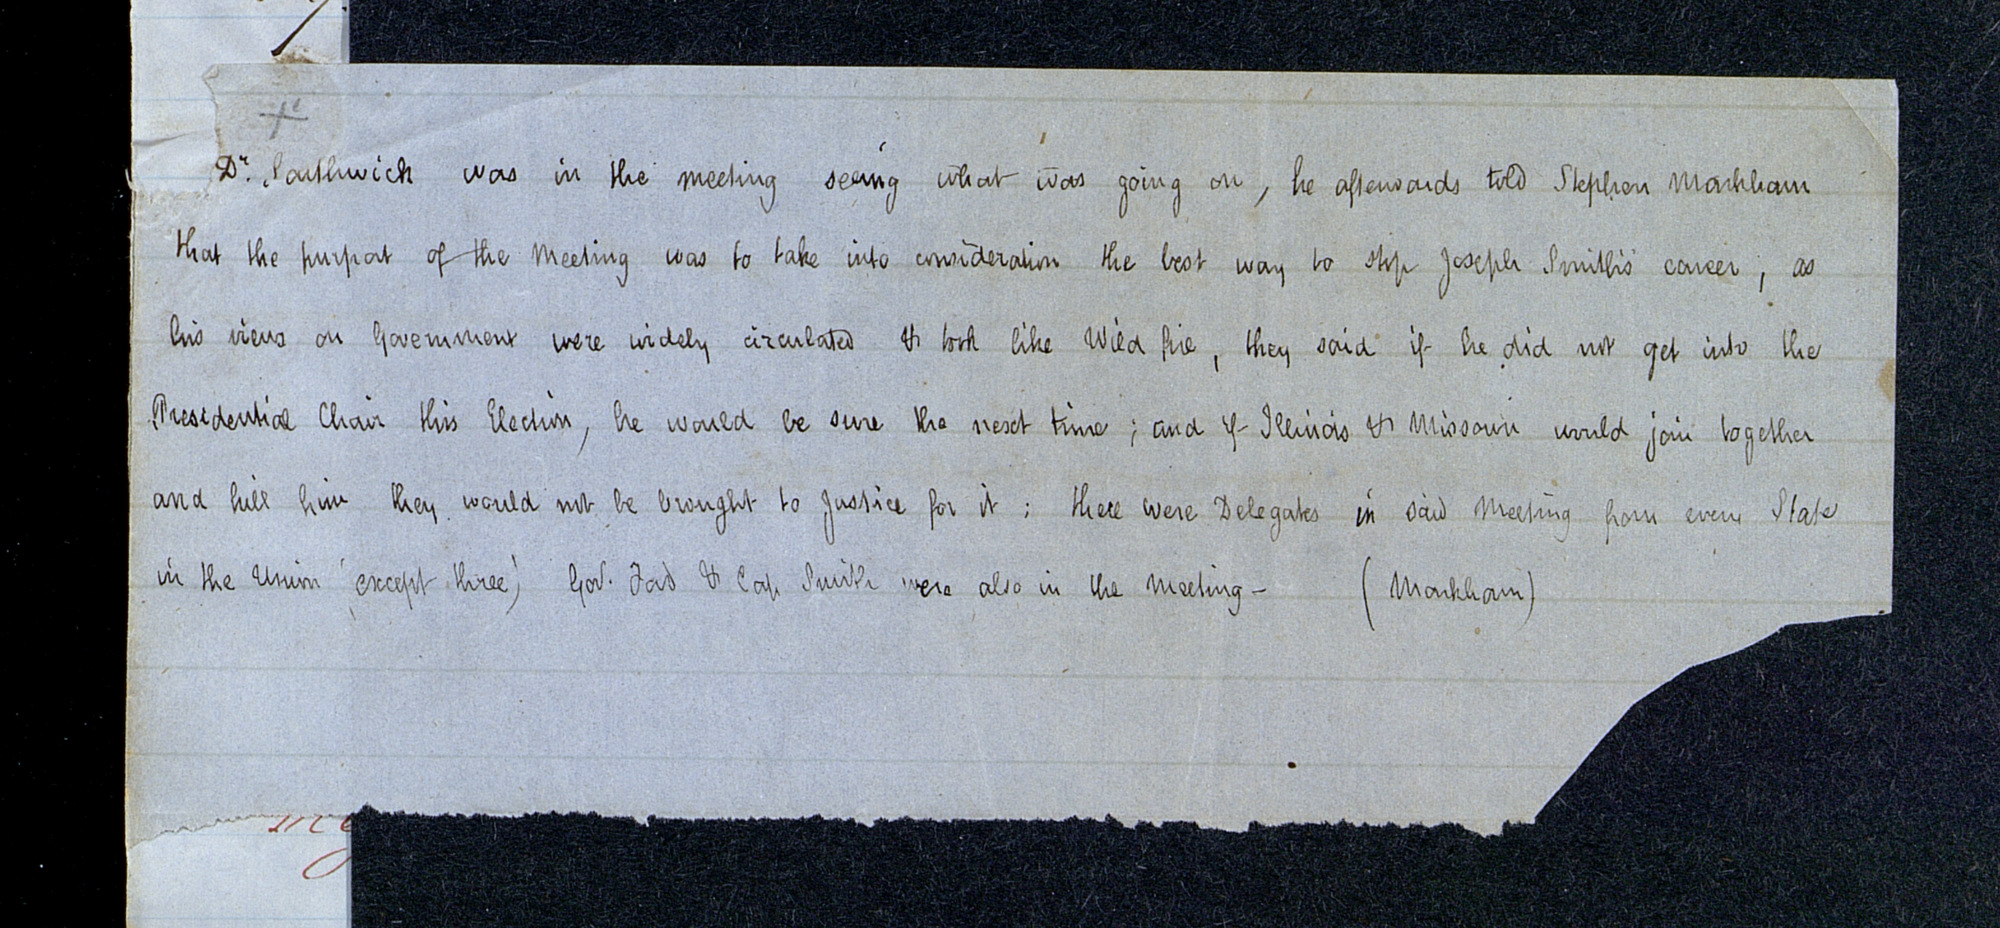 Dr. Southwick was in the meeting seeing what was going on, he afterwards told Stephen Markham
that the purport of the Meeting was to take into consideration the best way to stop Joseph Smith's career; as
his views on Government were widely circulated & took like Wild fire, they said if he did not get into the
Presidential Chair this Election, he would be sure the next time; and if Illinois & Missouri would join together
and kill him they would not be brought to Justice for it; there were Delegates in said Meeting from every State
in the Union (except three) Gov. Ford & Cap Smith were also in the Meeting— (Markham)